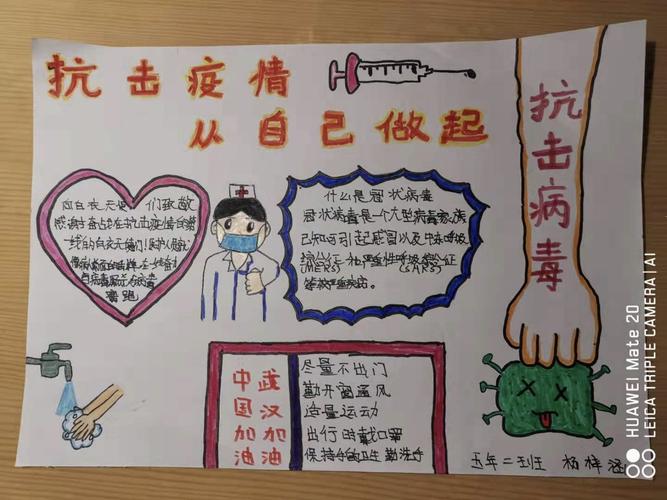 抗击疫情
从自己做起
抗击病毒
向白衣天使们致敬
感谢奋战在抗击疫情的第
一线的白衣天使们!
什么是冠状病毒
冠状病毒是一个大型病毒家族
已知可引起感冒以及中东呼吸
综合征
(MERS)
(SARS)
中国加油
武汉加油
尽量不出门
勤开窗通风
适量运动
出行时戴口罩
保持手的卫生 勤洗手
五年二班 杨梓涵
HUAWEI Mate 20
LEICA TRIPLE CAMERA | AI